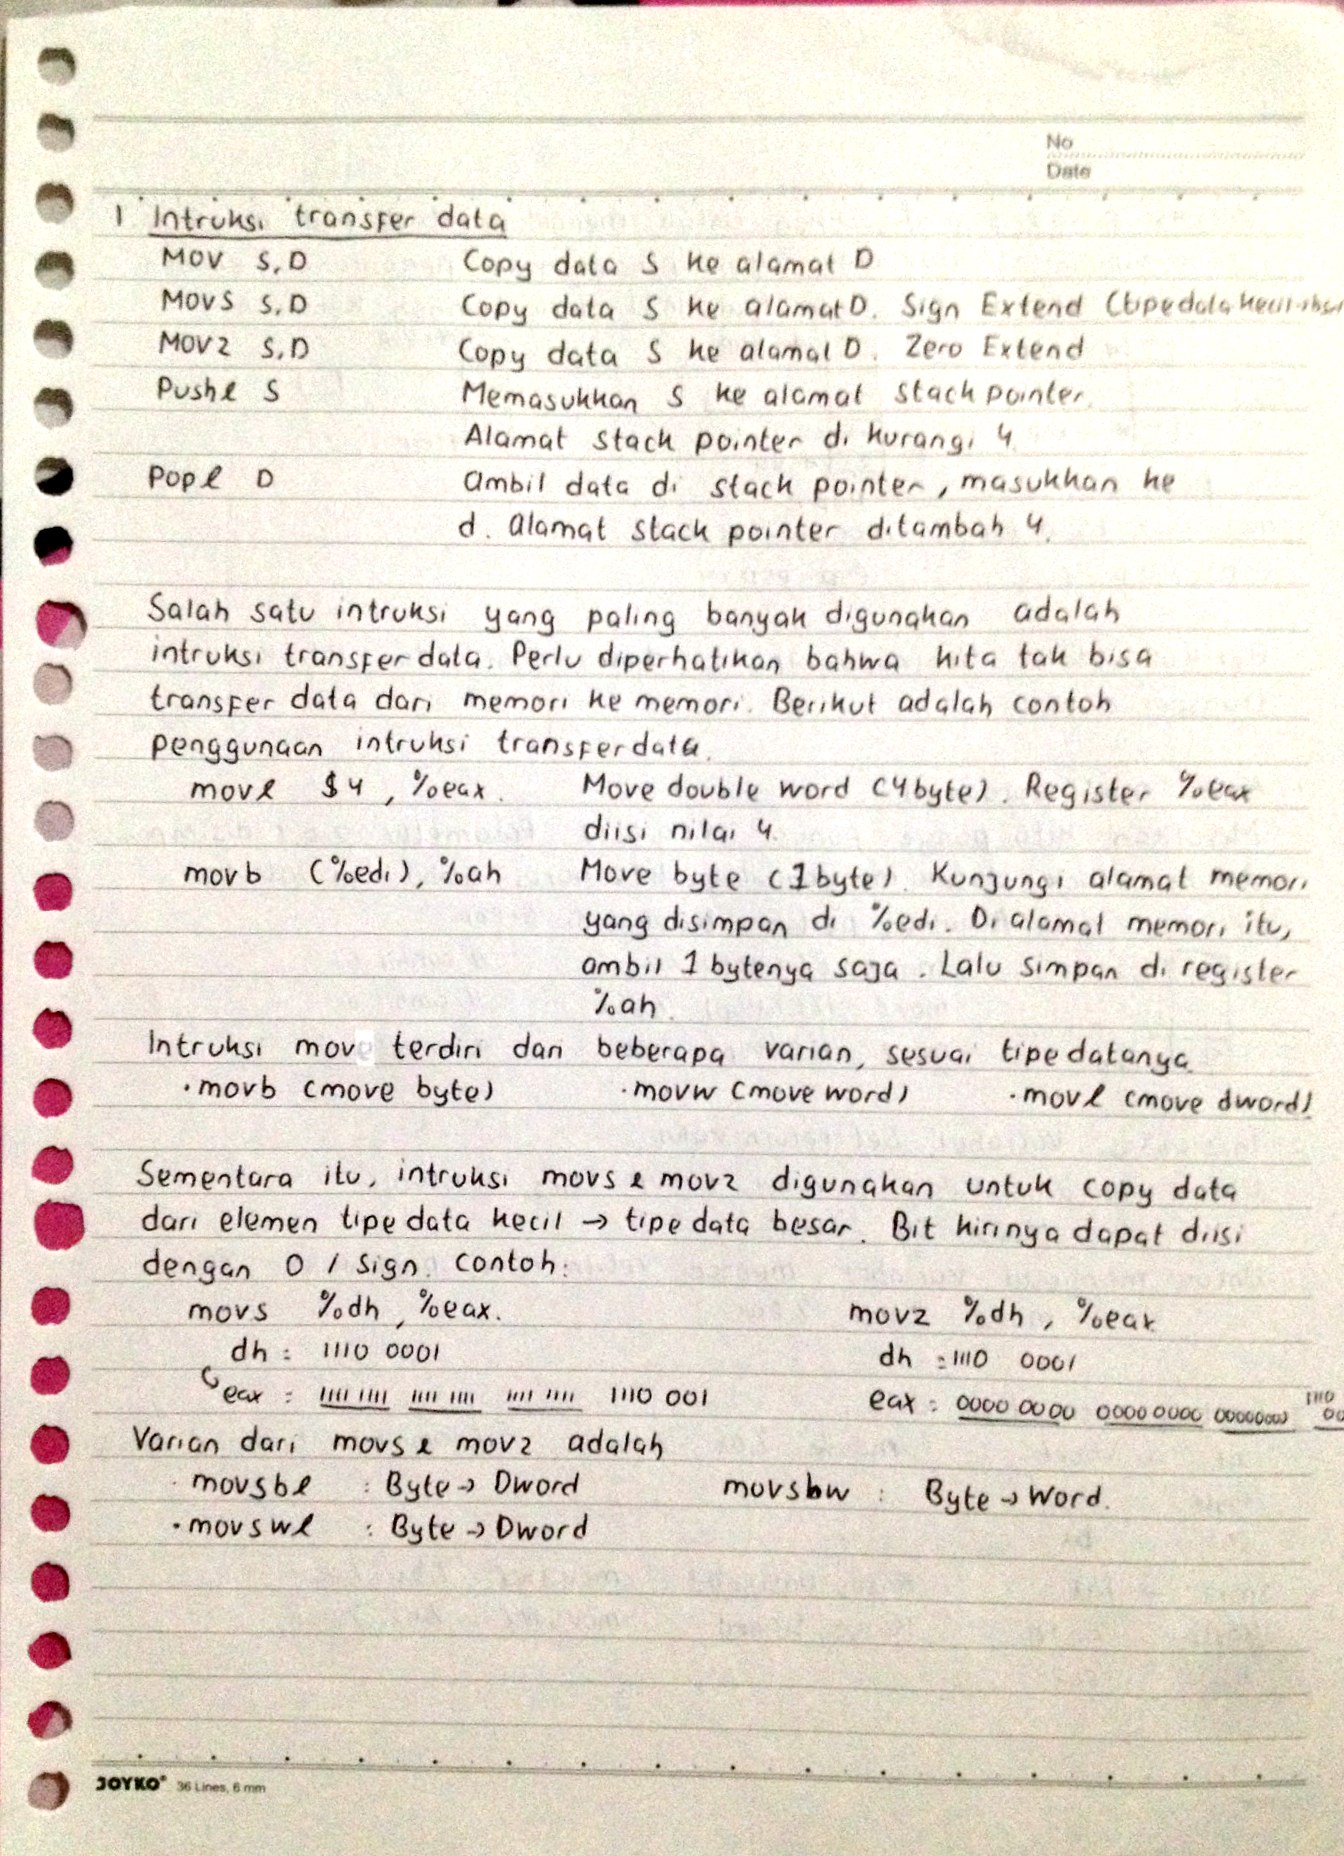 No
Date
1 Intruksi transfer data
Mov S,D Copy data S ke alamat D
Movs S,D Copy data S ke alamat D. Sign Extend (tipe data kecil
Movz S,D Copy data S ke alamat D. Zero Extend
Pushl S Memasukkan S ke alamat stack pointer.
Alamat stack pointer di kurangi 4
Popl D Ambil data di stack pointer, masukkan ke
d. Alamat stack pointer ditambah 4.
Salah satu intruksi yang paling banyak digunakan adalah
intruksi transfer data. Perlu diperhatikan bahwa kita tak bisa
transfer data dari memori ke memori. Berikut adalah contoh
penggunaan intruksi transfer data.
movl $4, %eax. Move double word (4 byte). Register %eax
diisi nilai 4.
movb (%edi), %ah Move byte (1 byte). Kunjungi alamat memori
yang disimpan di %edi. Di alamat memori itu,
ambil 1 bytenya saja. Lalu simpan di register
%ah.
Intruksi mov terdiri dari beberapa varian, sesuai tipe datanya
·movb (move byte) ·movw (move word) ·movl (move dword)
Sementara itu, intruksi movs & movz digunakan untuk copy data
dari elemen tipe data kecil → tipe data besar. Bit kirinya dapat diisi
dengan 0 / sign. Contoh:
movs %dh, %eax. movz %dh, %eax
dh : 1110 0001 dh : 1110 0001
eax : 1111 1111 1111 1111 1111 1111 1110 001 eax : 0000 0000 0000 0000 00000000 1110 00
Varian dari movs & movz adalah
·movsbl : Byte → Dword movsbw : Byte → Word.
·movswl : Byte → Dword
JOYKO® 36 Lines, 6 mm